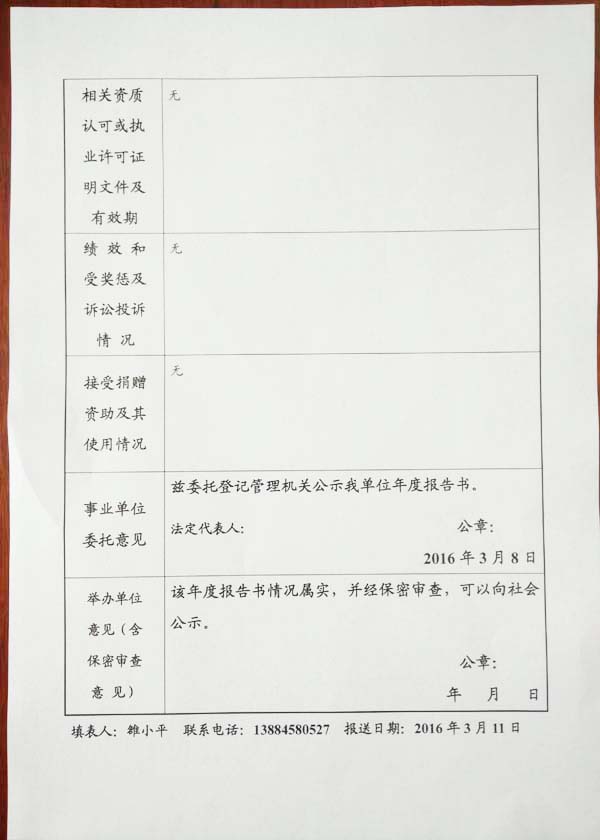 相关资质
认可或执
业许可证
明文件及
有效期
无
绩 效 和
受奖惩及
诉讼投诉
情 况
无
接受捐赠
资助及其
使用情况
无
事业单位
委托意见
兹委托登记管理机关公示我单位年度报告书。
法定代表人： 公章：
2016 年 3 月 8 日
举办单位
意见（含
保密审查
意 见）
该年度报告书情况属实，并经保密审查，可以向社会
公示。
公章：
年 月 日
填表人：雒小平 联系电话：13884580527 报送日期：2016 年 3 月 11 日